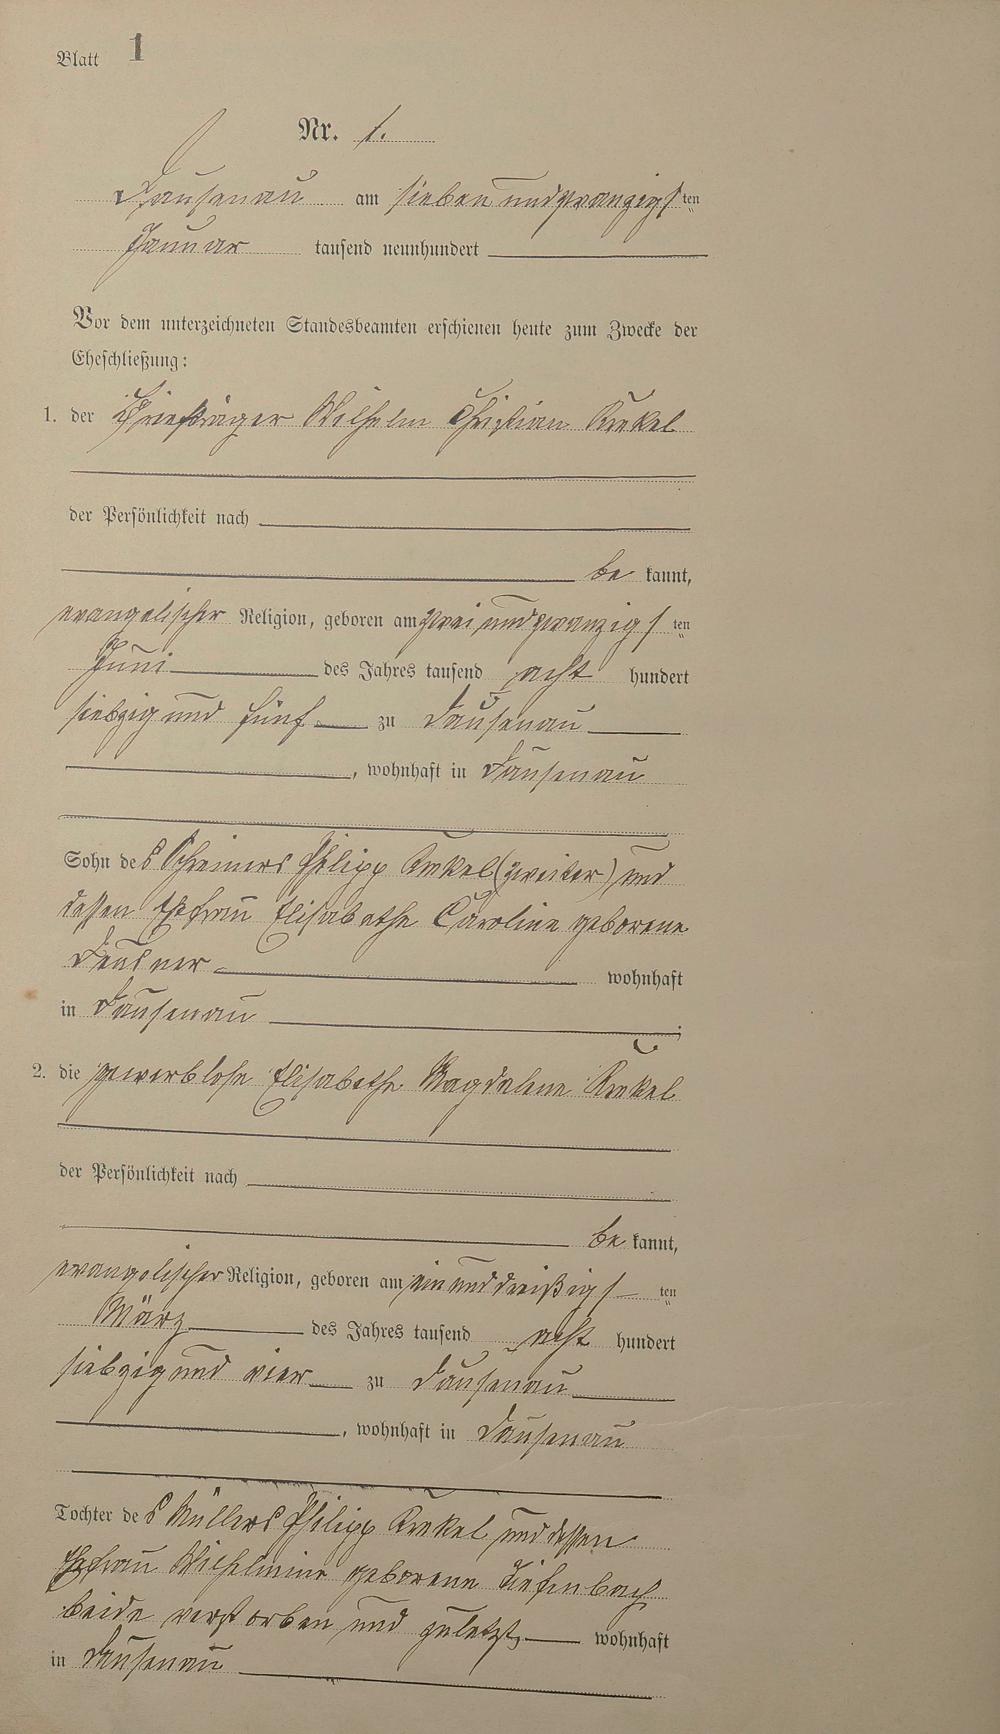 Blatt 1
Nr. 1.
Dausenau am sieben und zwanzigsten
Januar tausend neunhundert
Vor dem unterzeichneten Standesbeamten erschienen heute zum Zwecke der
Eheschließung:
1. der Briefträger Wilhelm Christian Kunkel
der Persönlichkeit nach
be kannt,
evangelischer Religion, geboren am zwei und zwanzigsten
Juni des Jahres tausend acht hundert
siebzig und fünf zu Dausenau
, wohnhaft in Dausenau
Sohn des Schreiners Philipp Kunkel (zweiter) und
dessen Ehefrau Elisabethe Caroline geborene
wohnhaft
in Dausenau
2. die gewerblose Elisabethe Magdalene Kunkel
der Persönlichkeit nach
be kannt,
evangelischer Religion, geboren am ein und dreißigsten
März des Jahres tausend acht hundert
siebzig und vier zu Dausenau
, wohnhaft in Dausenau
Tochter des Müllers Philipp Kunkel und dessen
Ehefrau Wilhelmine geborene Tiefenbach
beide verstorben und zuletzt wohnhaft
in Dausenau